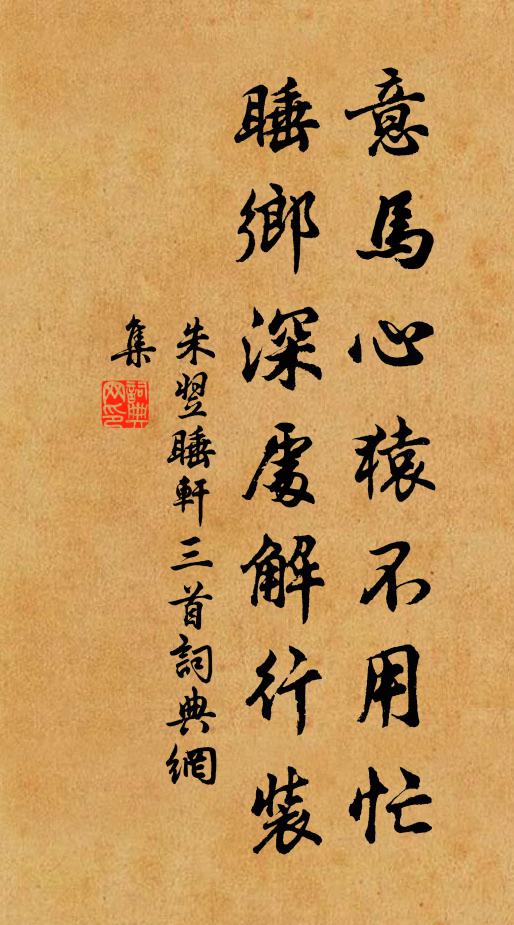 意馬心猿不用忙
睡鄉深處解行裝
朱翌睡軒三首詞典網
集
詞典
网印